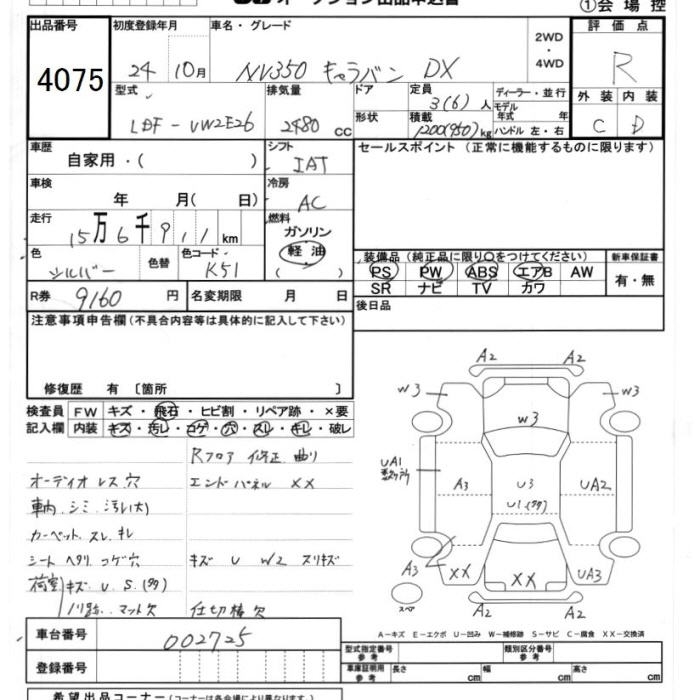 オークション出品申込書
①会場控
出品番号 4075
初度登録年月 24 10月
車名・グレード NV350 キャラバン DX
2WD・4WD
評価点 R
型式 LDF-VW2E26
排気量 2480 cc
ドア
形状
定員 3(6) 人
積載 1200(950) kg
ディーラー・並行
モデル年式 年
ハンドル 左・右
外装 C
内装 D
車歴 自家用・( )
シフト IAT
セールスポイント (正常に機能するものに限ります)
車検 年 月( 日)
冷房 AC
走行 15万6千911km
燃料 ガソリン 軽油 ( )
色 シルバー 色替
色コード K51
装備品(純正品に限り○をつけてください)
PS PW ABS エアB AW
SR ナビ TV カワ
新車保証書 有・無
R券 9160 円
名変期限 月 日
後日品
注意事項申告欄(不具合内容等は具体的に記入して下さい)
修復歴 有 〔箇所 〕
検査員記入欄
FW キズ・飛石・ヒビ割・リペア跡・×要
内装 キズ・汚レ・コゲ・穴・スレ・キレ・破レ
Rフロア 修正 曲り
オーディオレス 穴
エンドパネル XX
車内 シミ 汚レ(大)
カーペット スレ キレ
シート ヘタリ コゲ穴
キズ U W2 スリキズ
荷室 キズ U. S.(多)
ノリ跡 マット欠
仕切棒欠
A2 A2
W3 W3
W3
UA1
A3 U3 UA2
U1(多)
A3
XX XX UA3
スペア
A2 A2
A-キズ E-エクボ U-凹み W-補修跡 S-サビ C-腐食 XX-交換済
車台番号 002725
登録番号
型式指定番号 参考
類別区分番号 参考
車庫証明用 参考 長さ cm 幅 cm 高さ cm
希望出品コーナー(コーナーは各会場により異なります。)